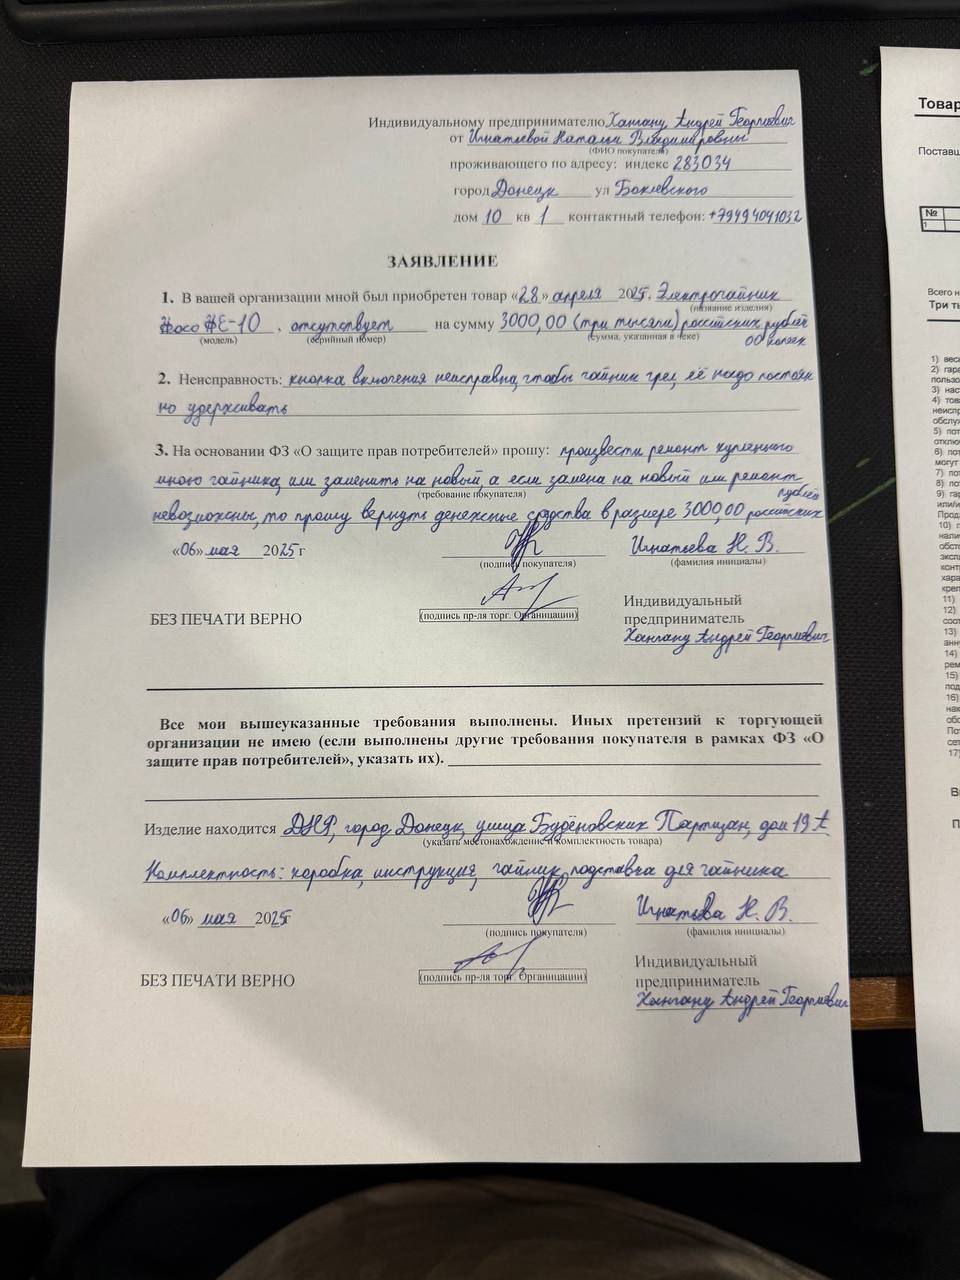 Индивидуальному предпринимателю Хангану Андрей Георгиевич
от Игнатьевой Натальи Владимировны
(ФИО покупателя)
проживающего по адресу: индекс 283034
город Донецк ул Боклевского
дом 10 кв 1 контактный телефон: +79494091032
ЗАЯВЛЕНИЕ
1. В вашей организации мной был приобретен товар «28» апреля 2025г. Электрочайник
(название изделия)
HE-10, отсутствует на сумму 3000,00 (три тысячи) российских рублей
(модель) (серийный номер) (сумма, указанная в чеке) 00 копеек
2. Неисправность: кнопка включения неисправна, чтобы чайник грел, её надо постоян
но удерживать
3. На основании ФЗ «О защите прав потребителей» прошу: произвести ремонт купленного
мною чайника, или заменить на новый, а если замена на новый или ремонт
(требование покупателя) рублей
невозможны, то прошу вернуть денежные средства в размере 3000,00 российских
«06» мая 2025г Игнатьева Н. В.
(подпись покупателя) (фамилия инициалы)
БЕЗ ПЕЧАТИ ВЕРНО (подпись пр-ля торг. Органицации) Индивидуальный
предприниматель
Хангану Андрей Георгиевич
Все мои вышеуказанные требования выполнены. Иных претензий к торгующей
организации не имею (если выполнены другие требования покупателя в рамках ФЗ «О
защите прав потребителей», указать их).
Изделие находится ДНР, город Донецк, улица Будёновских Партизан, дом 19А
(указать местонахождение и комплектность товара)
Комплектность: коробка, инструкция, чайник, подставка для чайника
«06» мая 2025г Игнатьева Н. В.
(подпись покупателя) (фамилия инициалы)
БЕЗ ПЕЧАТИ ВЕРНО (подпись пр-ля торг. Органицации) Индивидуальный
предприниматель
Хангану Андрей Георгиевич
Товар
Поставщ
№
1
Всего н
Три ты